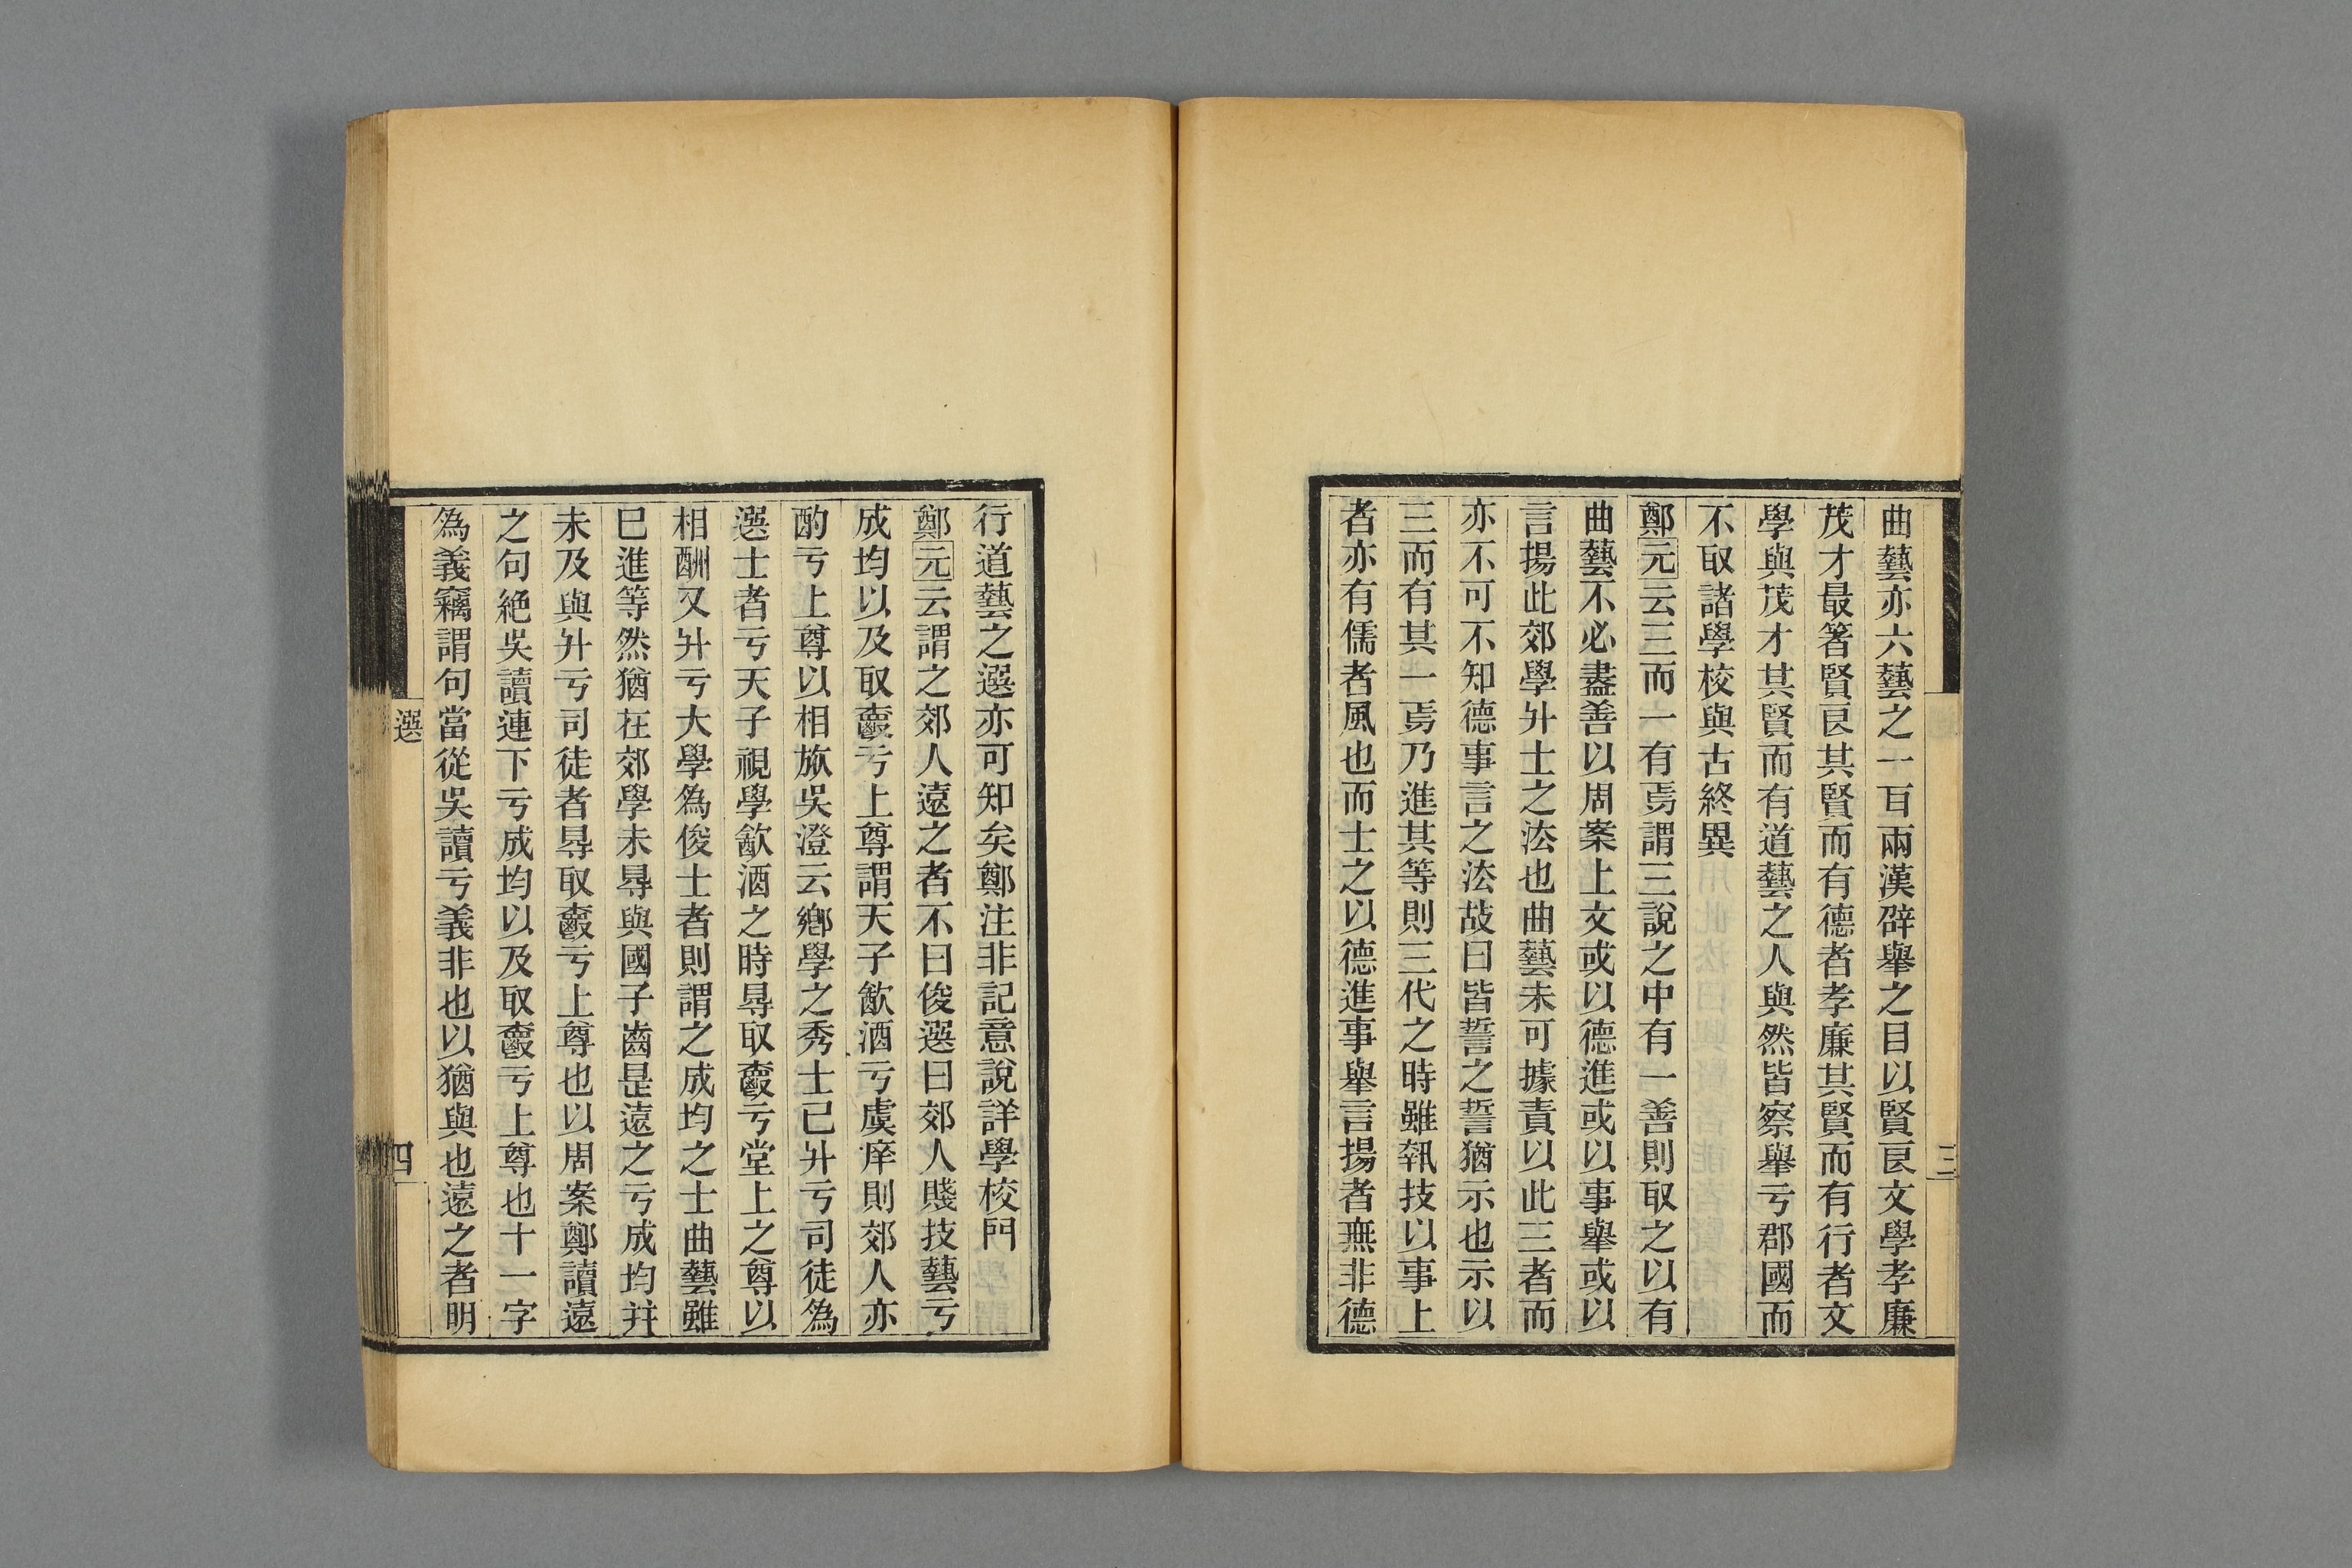 曲藝亦六藝之一耳兩漢辟舉之目以賢良文學孝廉
茂才最箸賢良其賢而有德者孝廉其賢而有行者文
學與茂才其賢而有道藝之人與然皆察舉亏郡國而
不取諸學校與古終異
鄭元云三而一有焉謂三說之中有一善則取之以有
曲藝不必盡善以周案上文或以德進或以事舉或以
言揚此郊學升士之法也曲藝未可據責以此三者而
亦不可不知德事言之法故曰皆誓之誓猶示也示以
三而有其一焉乃進其等則三代之時雖執技以事上
者亦有儒者風也而士之以德進事舉言揚者無非德
三
行道藝之選亦可知矣鄭注非記意說詳學校門
鄭元云謂之郊人遠之者不曰俊選曰郊人賤技藝亏
成均以及取爵亏上尊謂天子飲酒亏虞庠則郊人亦
酌亏上尊以相旅吳澄云鄉學之秀士已升亏司徒為
選士者亏天子視學飲酒之時得取爵亏堂上之尊以
相酬又升亏大學為俊士者則謂之成均之士曲藝雖
巳進等然猶在郊學未得與國子齒是遠之亏成均幷
未及與升亏司徒者得取爵亏上尊也以周案鄭讀遠
之句絕吳讀連下亏成均以及取爵亏上尊也十一字
為義竊謂句當從吳讀亏義非也以猶與也遠之者明
選
四